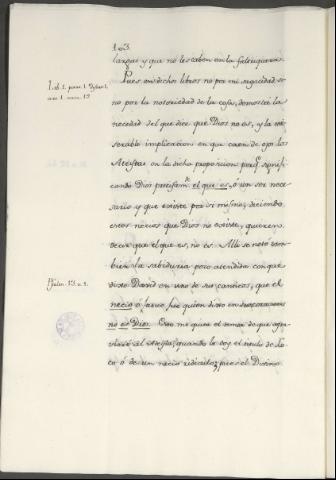 103
largas y que no les caben en la faltriquera.
Pues en dichos libros no por mi sagacidad si
no por la notoriedad de la cosa, demostré la
necedad del que dice que Dios no es, y la mi-
serable implicacion en que caen de ojo los
Ateistas en la dicha proposicion porq.e signifi-
cando Dios precisam.te el que es, ó un ser nece-
sario y que existe por si mismo, deciendo
estos necios que Dios no existe, quieren
decir que el que es, no es. Alli se notó tam-
bien la sabiduria poco atendida con que
dixo David en uno de sus canticos, que el
necio ó fatuo fue quien dixo en su corazon
no es Dios. Esto me quita el temor de que
al Ateista, quando le doy el titulo de lo-
co ó de un necio ridiculo, pues el Divino
Lib. 1. part. 1. Dysert.
art. 1. num. 15
Psalm. 13. v. 1.